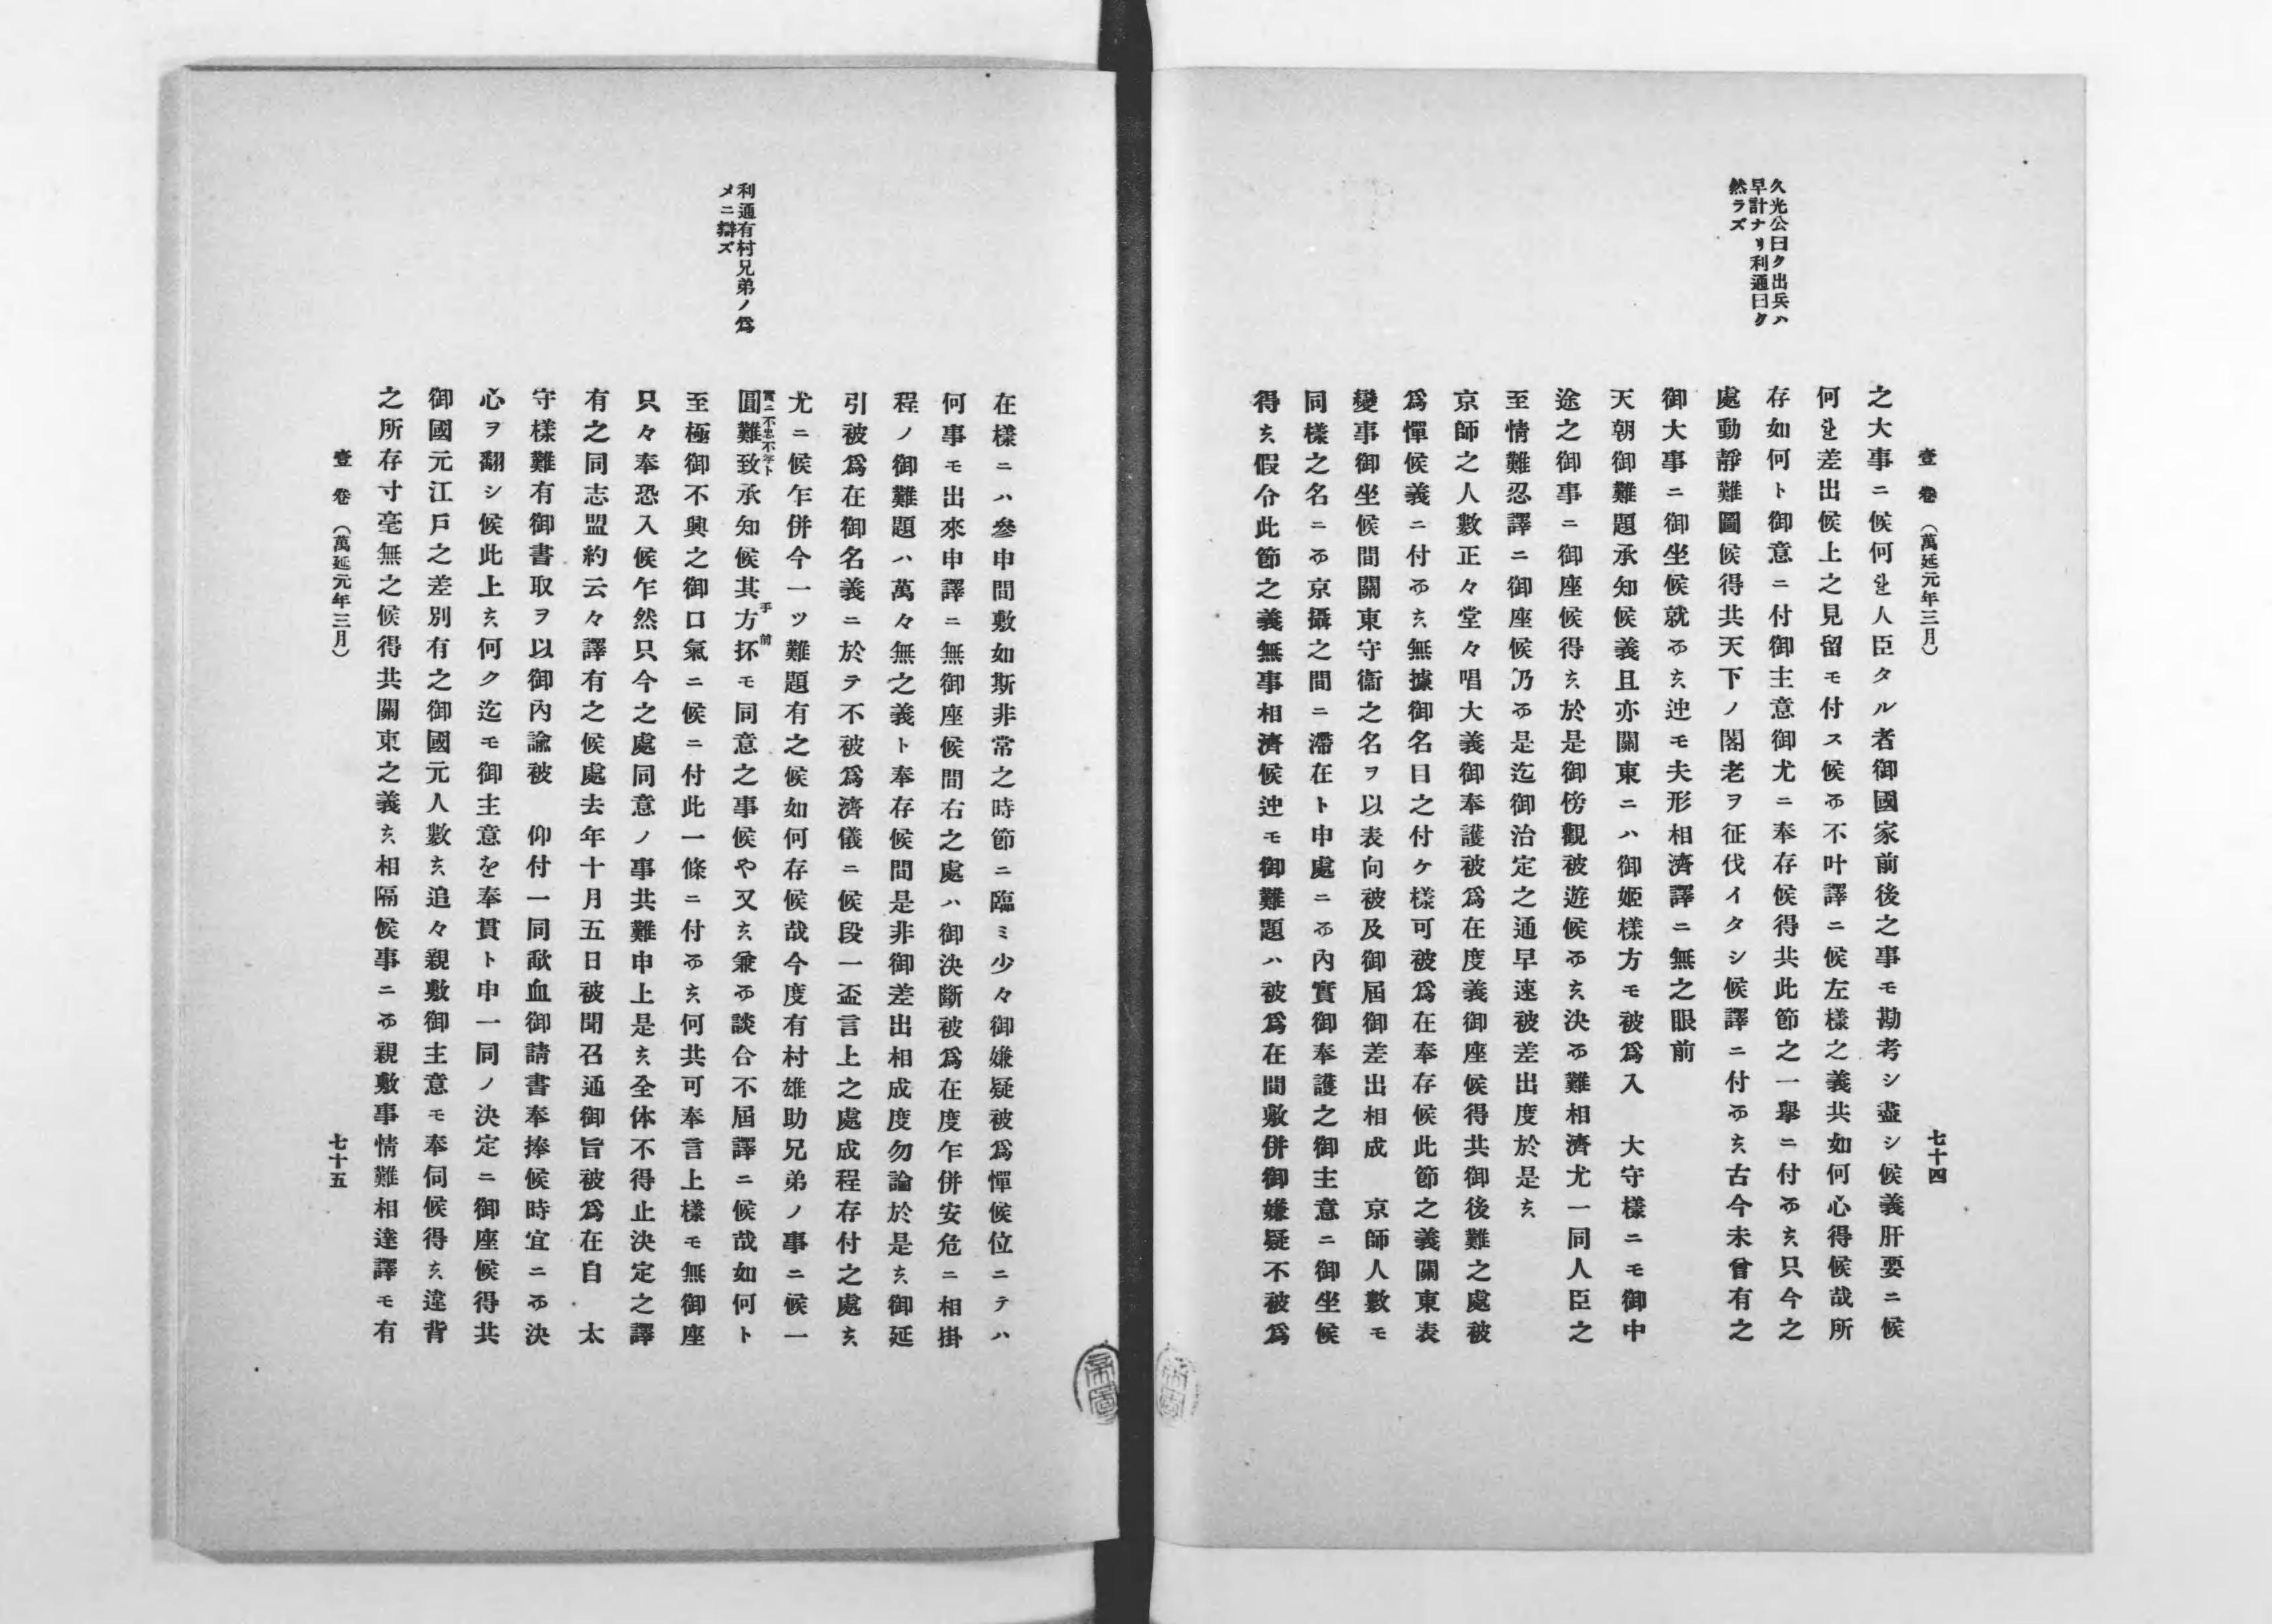 壹卷 (萬延元年三月)
七十四
久光公曰ク出兵ハ
早計ナリ利通曰ク
然ラズ
之大事ニ候何分人臣タル者御國家前後之事モ勘考シ盡シ候義肝要ニ候
何分差出候上之見留モ付ス候而不叶譯ニ候左樣之義共如何心得候哉所
存如何ト御意ニ付御主意御尤ニ奉存候得共此節之一擧ニ付而ハ只今之
處動靜難圖候得共天下ノ閣老ヲ征伐イタシ候譯ニ付而ハ古今未曾有之
御大事ニ御坐候就而ハ迚モ夫形相濟譯ニ無之眼前
天朝御難題承知候義且亦關東ニハ御姬樣方モ被爲入　大守樣ニモ御中
途之御事ニ御座候得ハ於是御傍觀被遊候而ハ決而難相濟尤一同人臣之
至情難忍譯ニ御座候乃而是迄御治定之通早速被差出度於是ハ
京師之人數正々堂々唱大義御奉護被爲在度義御座候得共御後難之處被
爲憚候義ニ付而ハ無據御名目之付ケ樣可被爲在奉存候此節之義關東表
變事御坐候間關東守衞之名ヲ以表向被及御屆御差出相成　京師人數モ
同樣之名ニ而京攝之間ニ滯在ト申處ニ而內實御奉護之御主意ニ御坐候
得ハ假令此節之義無事相濟候迚モ御難題ハ被爲在間敷併御嫌疑不被爲
在樣ニハ參申間敷如斯非常之時節ニ臨ミ少々御嫌疑被爲憚候位ニテハ
何事モ出來申譯ニ無御座候間右之處ハ御決斷被爲在度乍併安危ニ相掛
程ノ御難題ハ萬々無之義ト奉存候間是非御差出相成度勿論於是ハ御延
引被爲在御名義ニ於テ不被爲濟儀ニ候段一盃言上之處成程存付之處ハ
尤ニ候乍併今一ツ難題有之候如何存候哉今度有村雄助兄弟ノ事ニ候一
實ニ不忠不孝ト
手前
圓難致承知候其方抔モ同意之事候や又ハ兼而談合不屆譯ニ候哉如何ト
至極御不興之御口氣ニ候ニ付此一條ニ付而ハ何共可奉言上樣モ無御座
只々奉恐入候乍然只今之處同意ノ事共難申上是ハ全体不得止決定之譯
有之同志盟約云々譯有之候處去年十月五日被聞召通御旨被爲在自　太
守樣難有御書取ヲ以御內諭被　仰付一同歃血御請書奉捧候時宜ニ而決
心ヲ翻シ候此上ハ何ク迄モ御主意を奉貫ト申一同ノ決定ニ御座候得共
御國元江戶之差別有之御國元人數ハ追々親敷御主意モ奉伺候得ハ違背
之所存寸毫無之候得共關東之義ハ相隔候事ニ而親敷事情難相達譯モ有
利通有村兄弟ノ爲
メニ辯ズ
壹卷 (萬延元年三月)
七十五